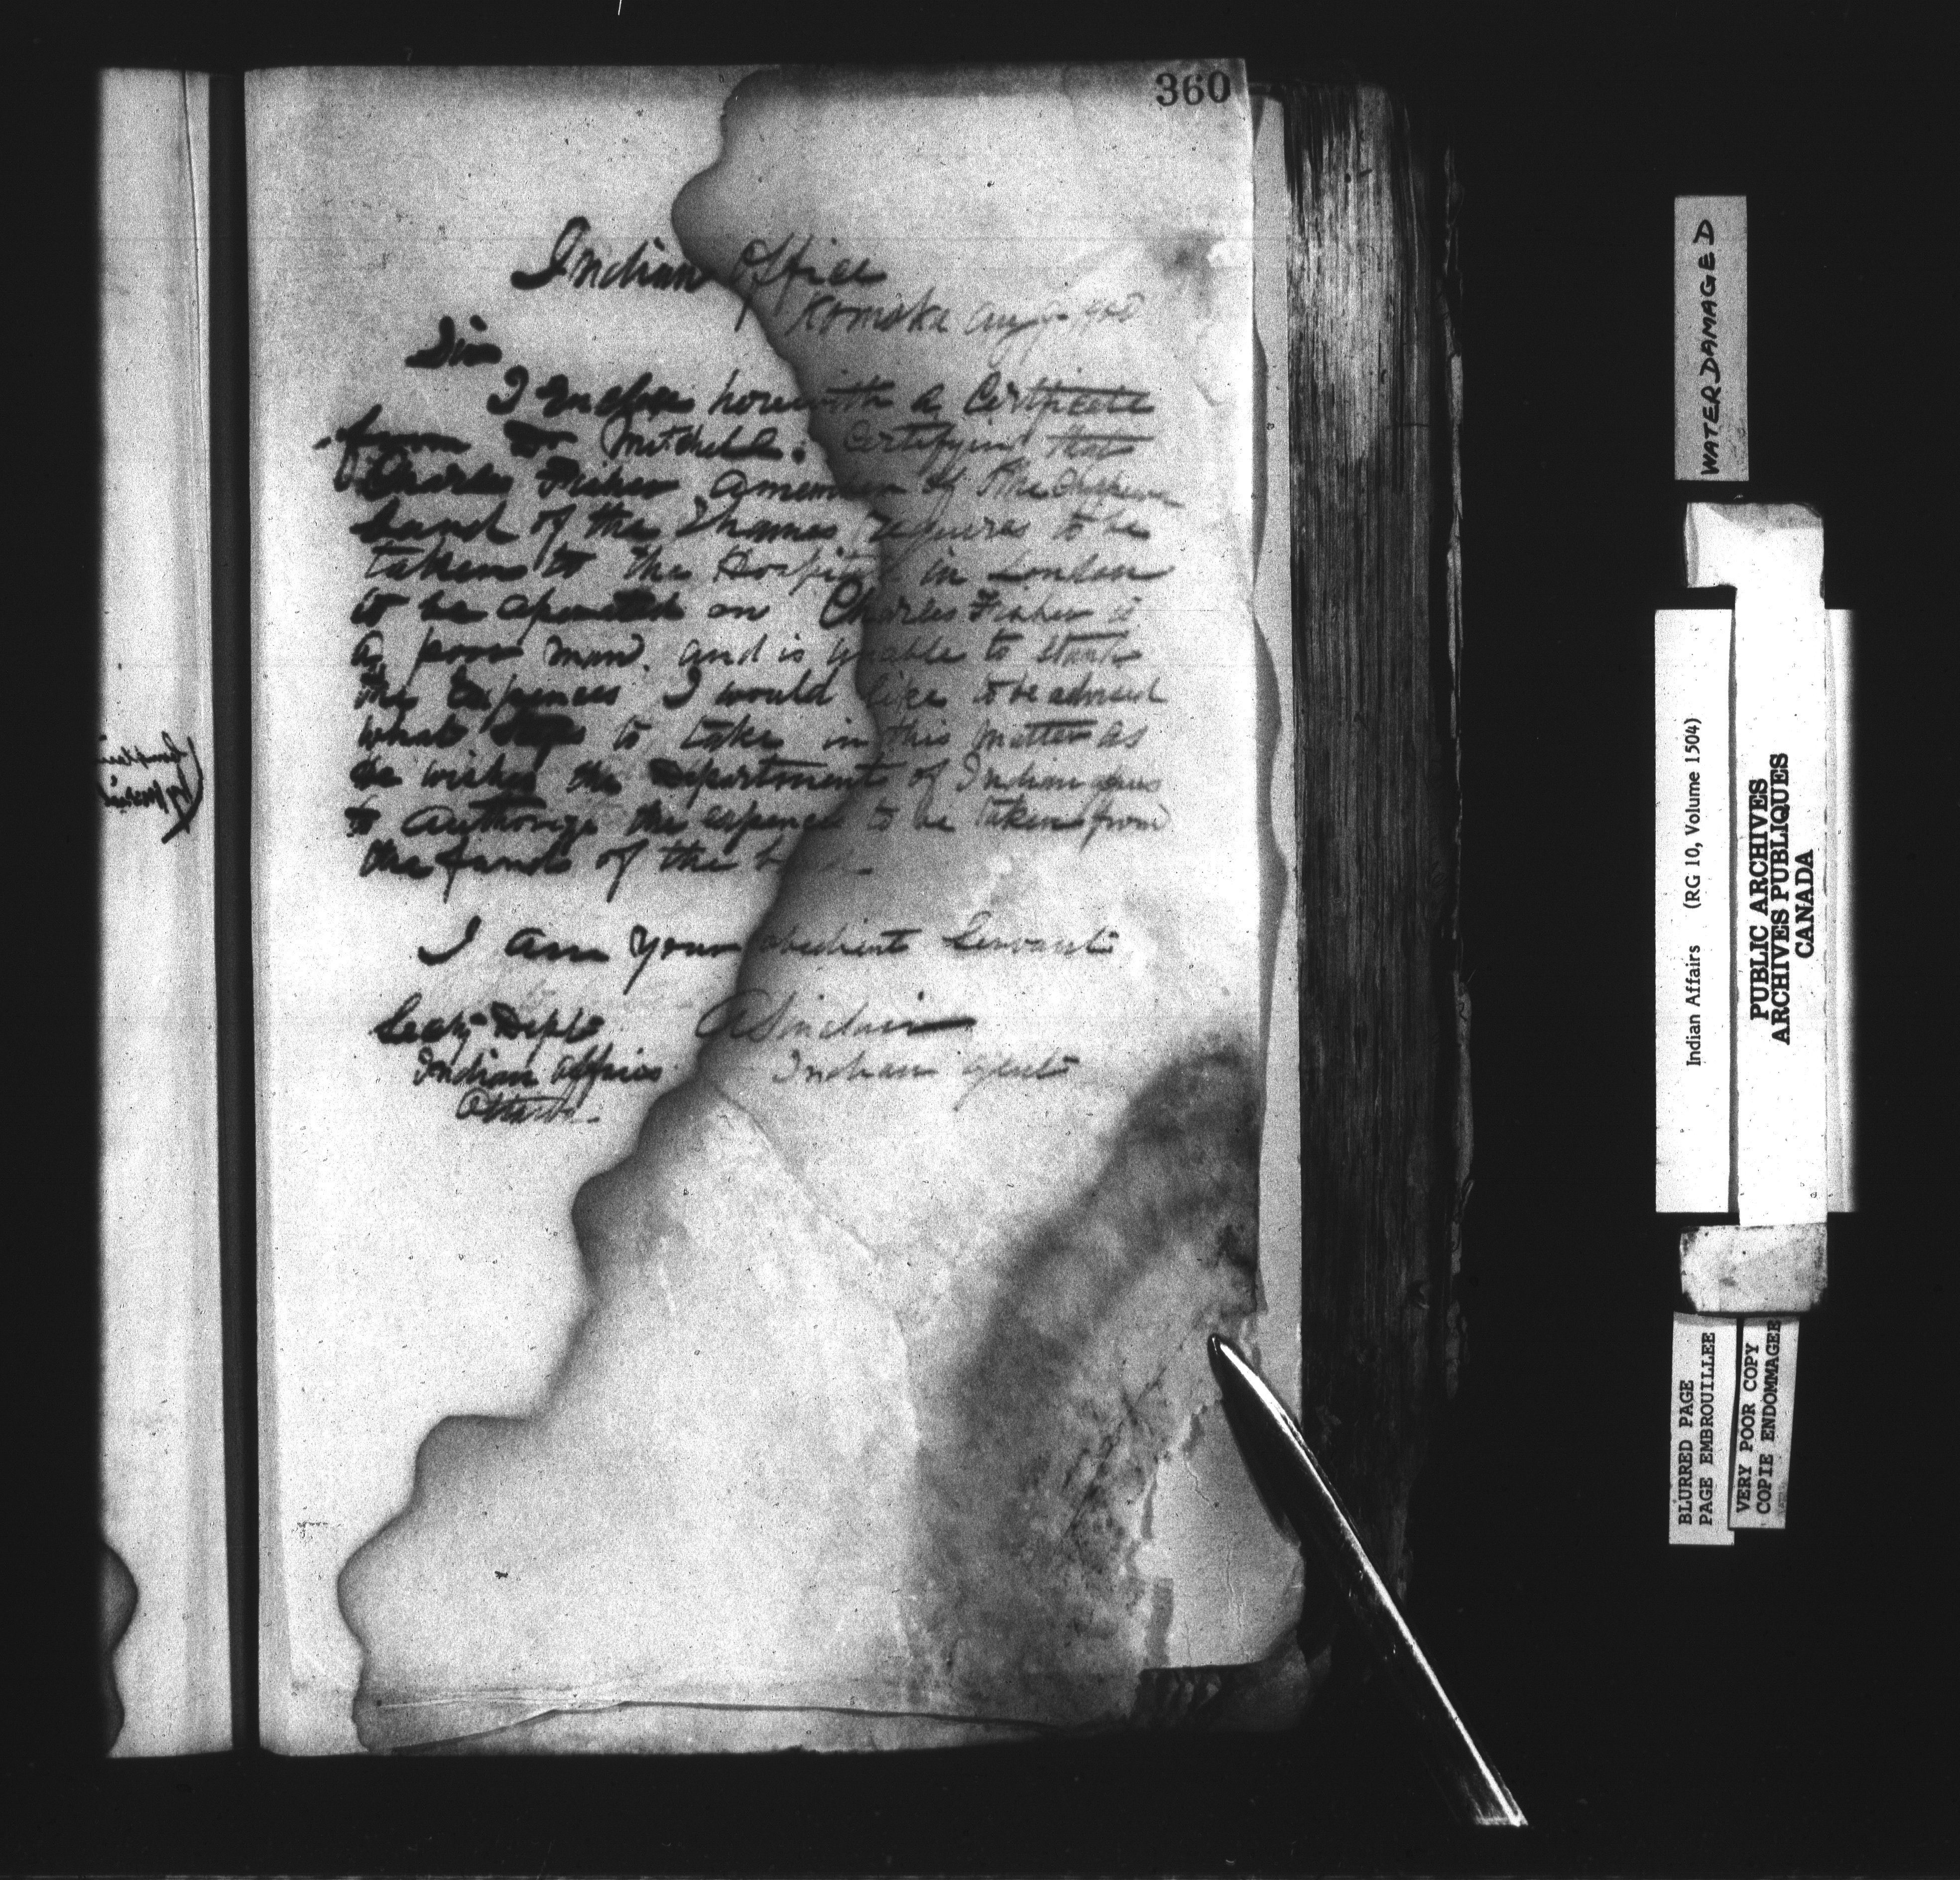 360
Indian Office
Komoka Aug
Sir
I Enclose herewith a Certificate
from Dr Mitchell. Certifying that
Charles Fisher a member of the
band of the Thames requires to be
taken to the Hospital in London
to be operated on Charles Fisher is
a poor man. and is unable to stand
the Expenses I would like to be advised
what steps to take in this matter as
he wishes the Department of Indian
to Authorize the expense to be taken from
the funds of the
I am your obedient Servant
Secty Dept
A Sinclair
Indian Affairs
Indian Agent
Ottawa
WATERDAMAGED
Indian Affairs (RG 10, Volume 1504)
PUBLIC ARCHIVES
ARCHIVES PUBLIQUES
CANADA
BLURRED PAGE
PAGE EMBROUILLEE
VERY POOR COPY
COPIE ENDOMMAGEE